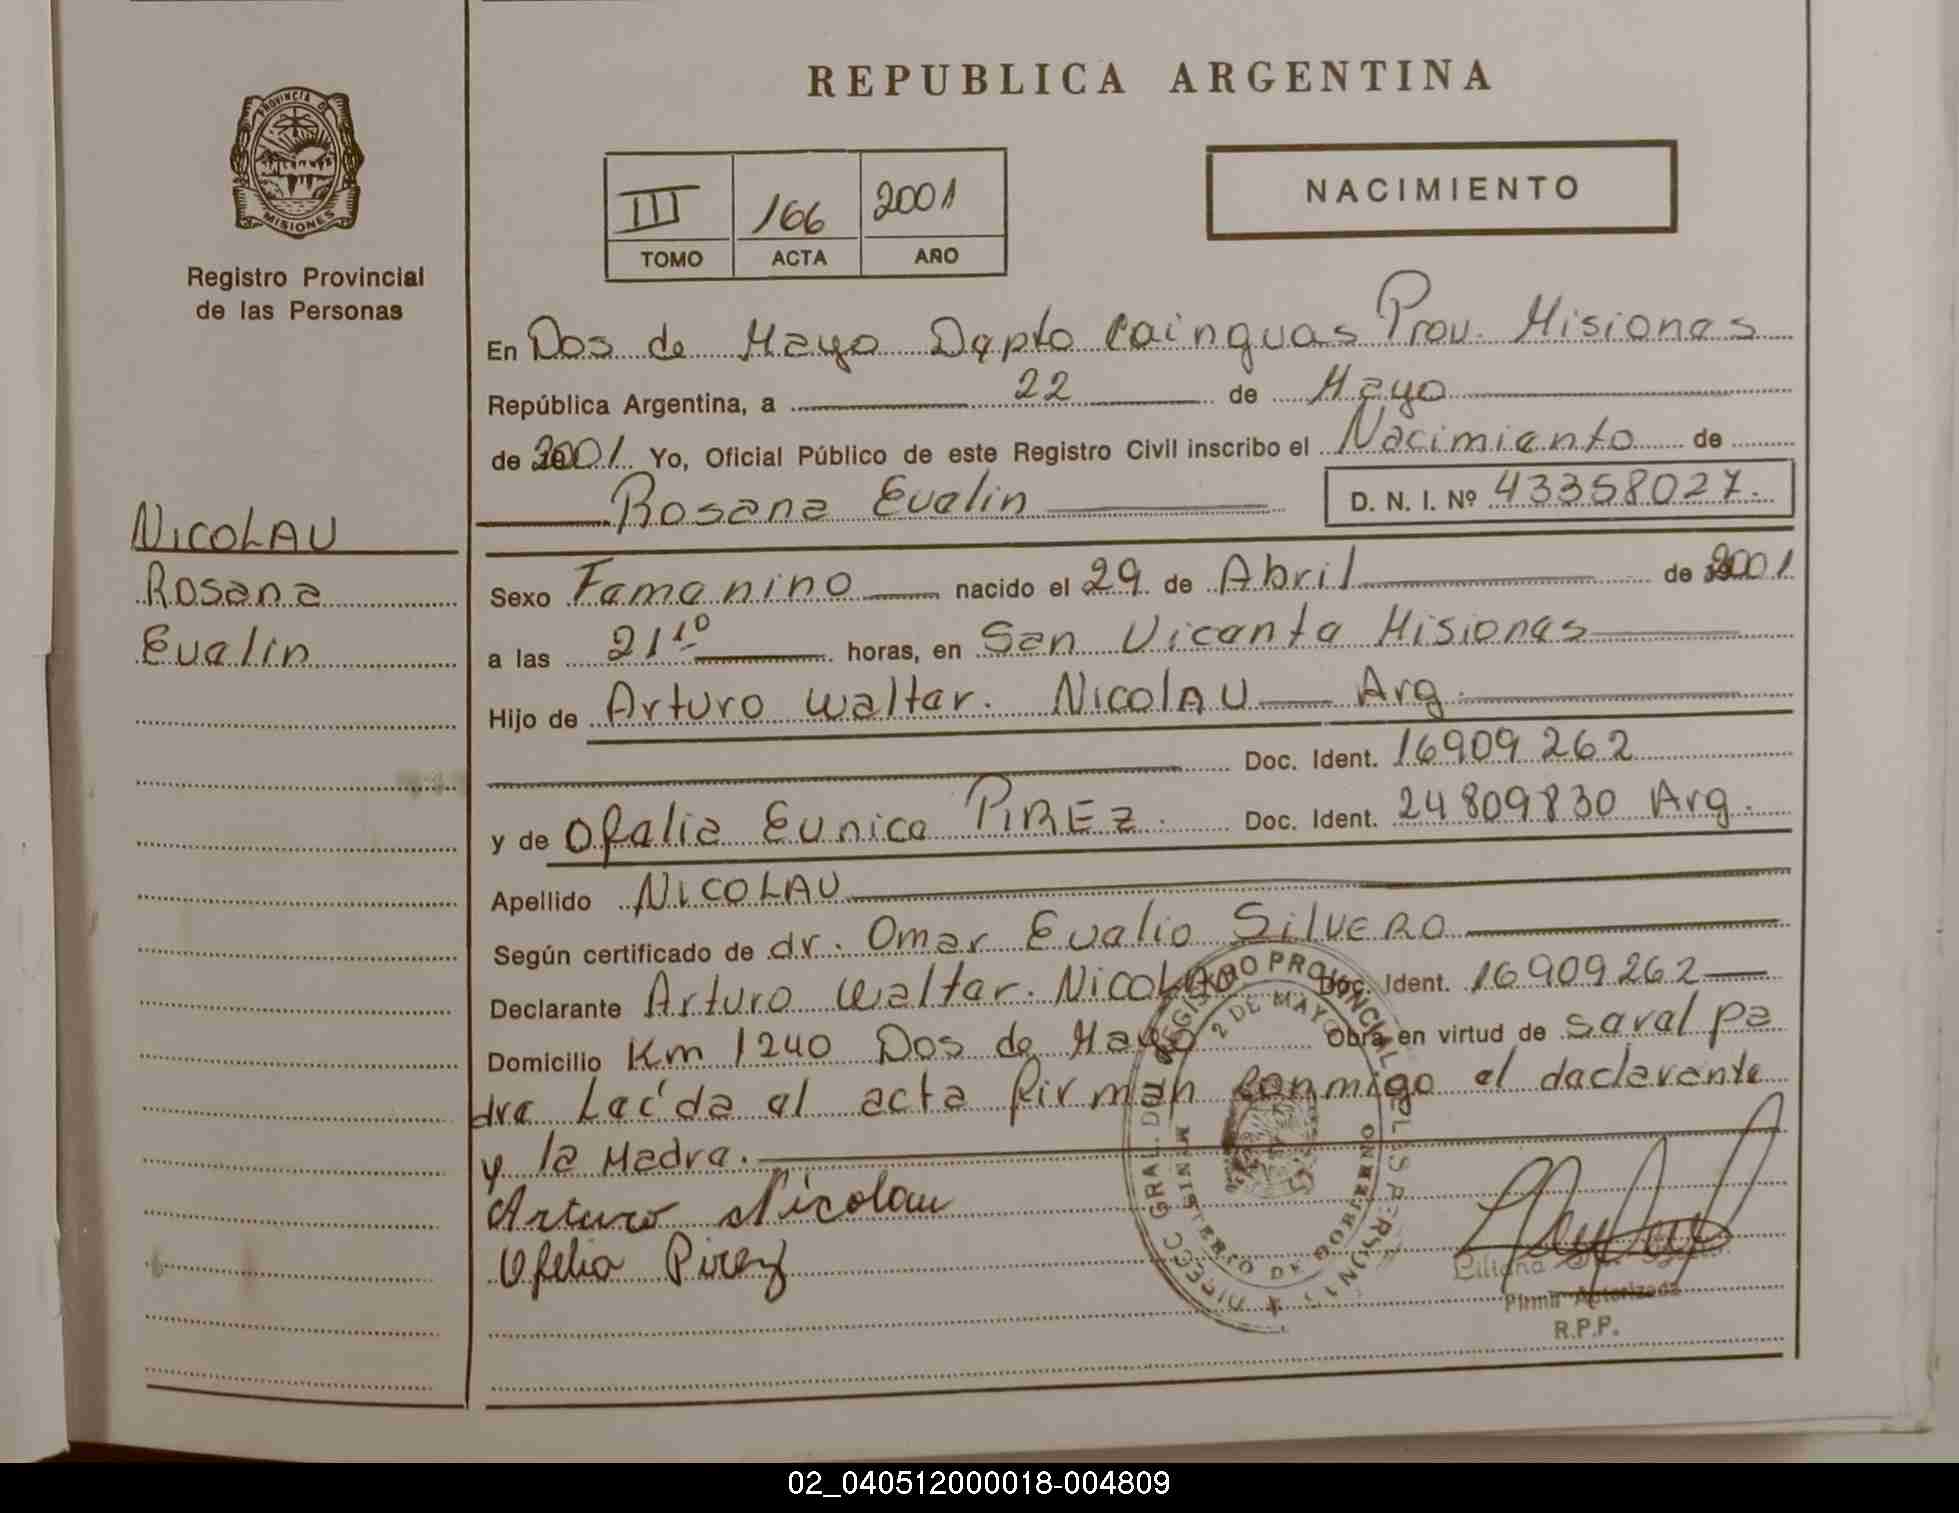 REPUBLICA ARGENTINA
PROVINCIA DE
MISIONES
Registro Provincial
de las Personas
III 166 2001
TOMO ACTA AÑO
NACIMIENTO
En Dos de Mayo Depto Cainguas Prov. Misiones
República Argentina, a 22 de Mayo
de 2001. Yo, Oficial Público de este Registro Civil inscribo el Nacimiento de
Rosana Evelin D. N. I. Nº 43358027.
NICOLAU
Rosana
Evelin
Sexo Femenino nacido el 29 de Abril de 2001
a las 21 10 horas, en San Vicente Misiones
Hijo de Arturo Walter. NICOLAU Arg.
Doc. Ident. 16909262
y de Ofelia Eunice PIREZ. Doc. Ident. 24809830 Arg.
Apellido NICOLAU
Según certificado de dr. Omar Evelio SILVERO
Declarante Arturo Walter. NICOLAU Doc. Ident. 16909262
Domicilio Km 1240 Dos de Mayo Obra en virtud de ser el pa
dre Leída el acta firman conmigo el declarante
y la Madre.
Arturo Nicolau
Ofelia Pirez
REGISTRO PROVINCIAL
2 DE MAYO
MINISTERIO DE GOBIERNO
Liliana
Firma Autorizada
R.P.P.
02_040512000018-004809